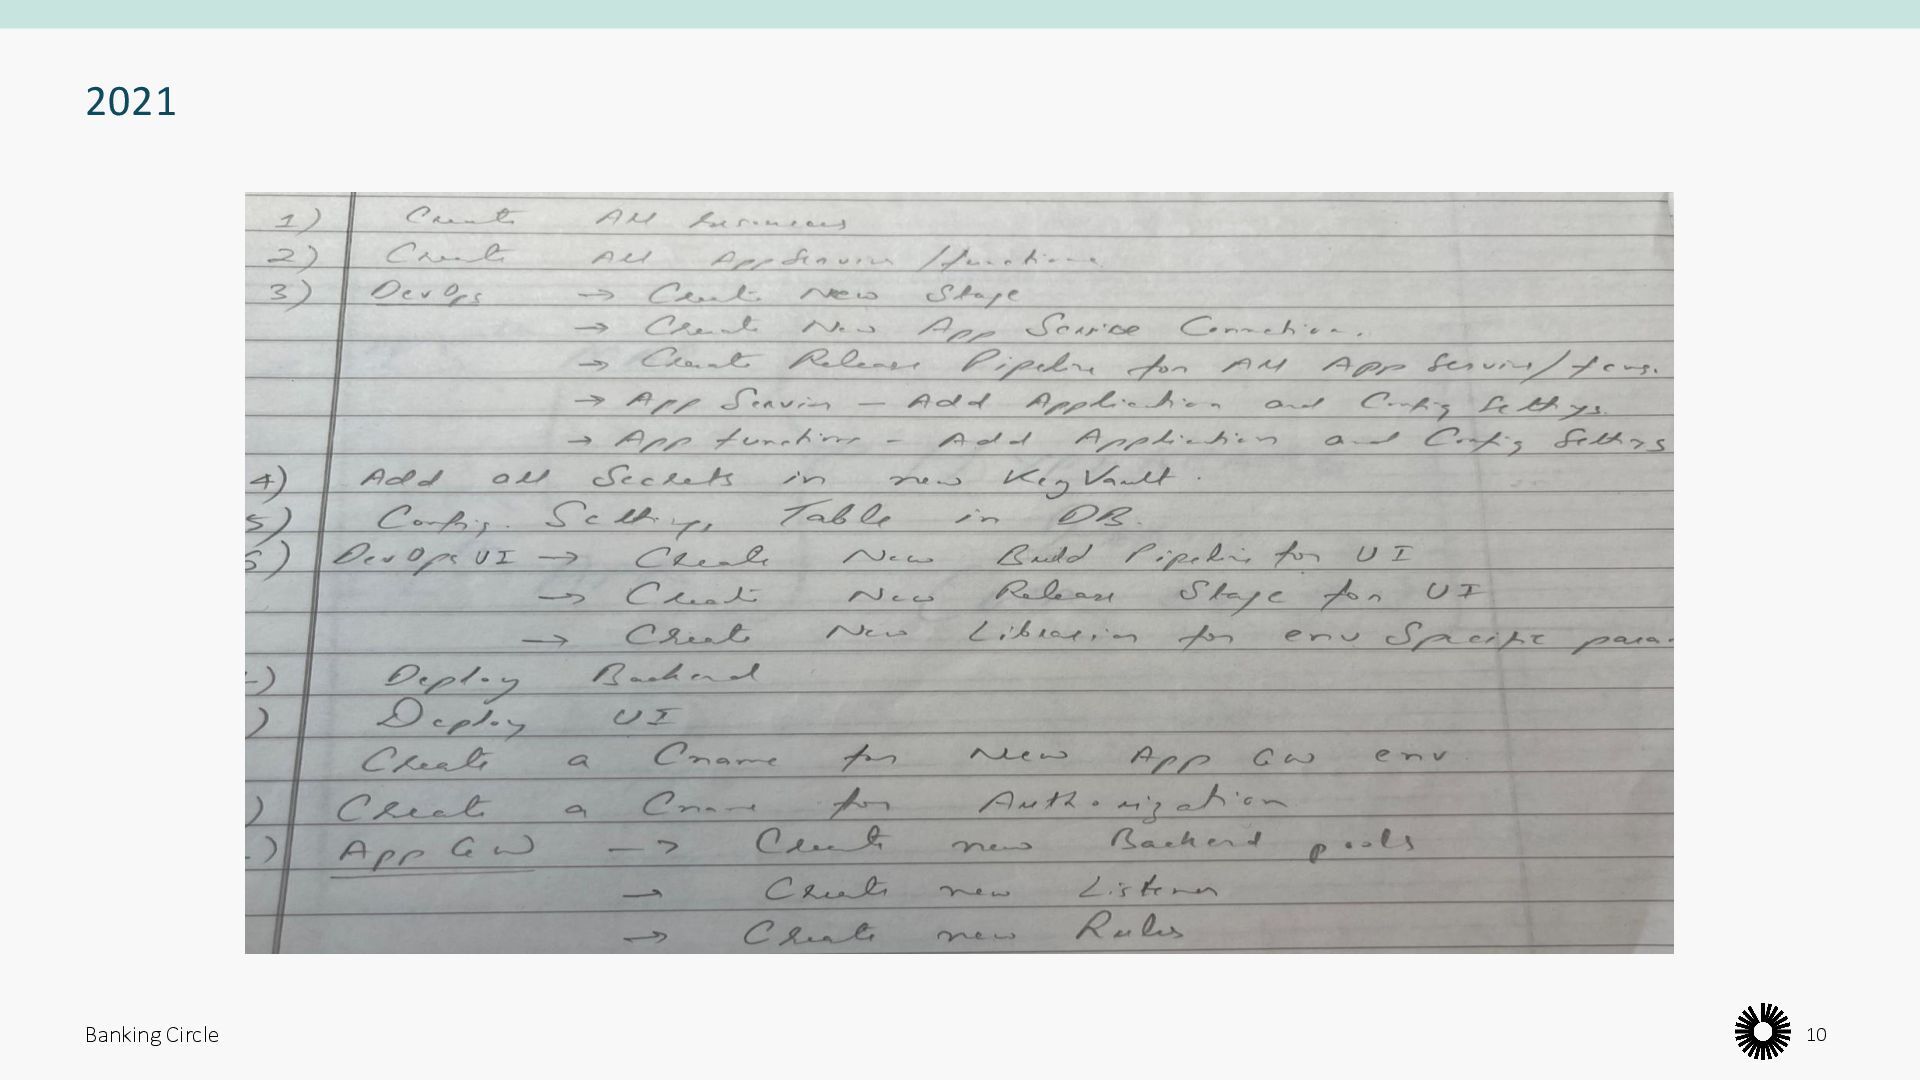 2021
1) Create All Resources
2) Create All App Services / functions
3) DevOps → Create New Stage
→ Create New App Service Connection.
→ Create Release Pipeline for All App Services/funs.
→ App Services - Add Application and Config Settings.
→ App functions - Add Application and Config Settings
4) Add all Secrets in new KeyVault.
5) Config. Settings Table in DB.
6) DevOps UI → Create New Build Pipeline for UI
→ Create New Release Stage for UI
→ Create New Libraries for env Specific para
) Deploy Backend
) Deploy UI
Create a Cname for New App GW env
) Create a Cname for Authorization
) App GW → Create new Backend pools
→ Create new Listener
→ Create new Rules
Banking Circle
10